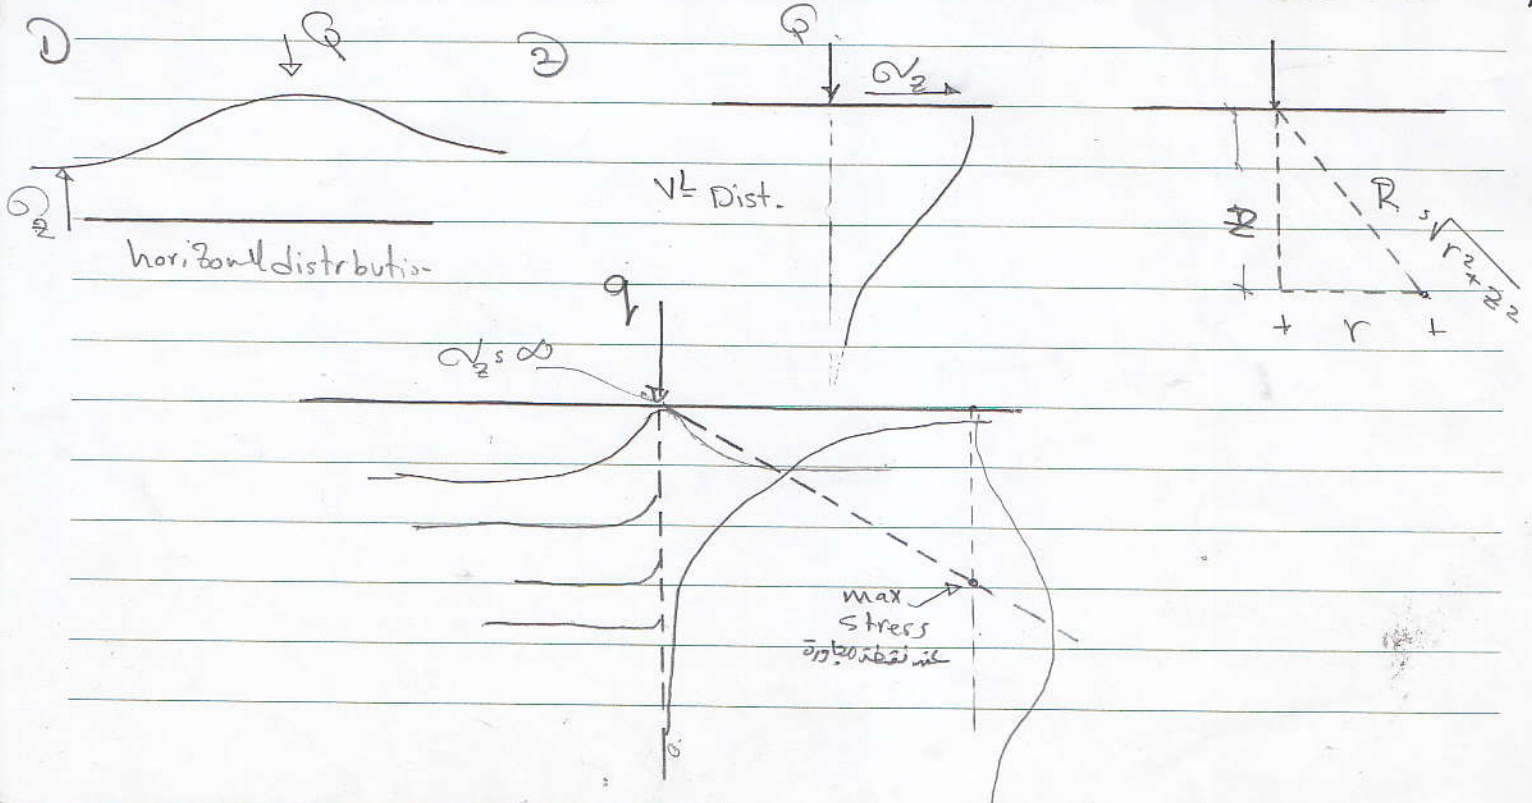 1) Q
σz
horizontal distrbution
2) Q
σz
VL Dist.
z
R = √r² + z²
r
q
σz = ∞
max
stress
عند نقطة مجاورة